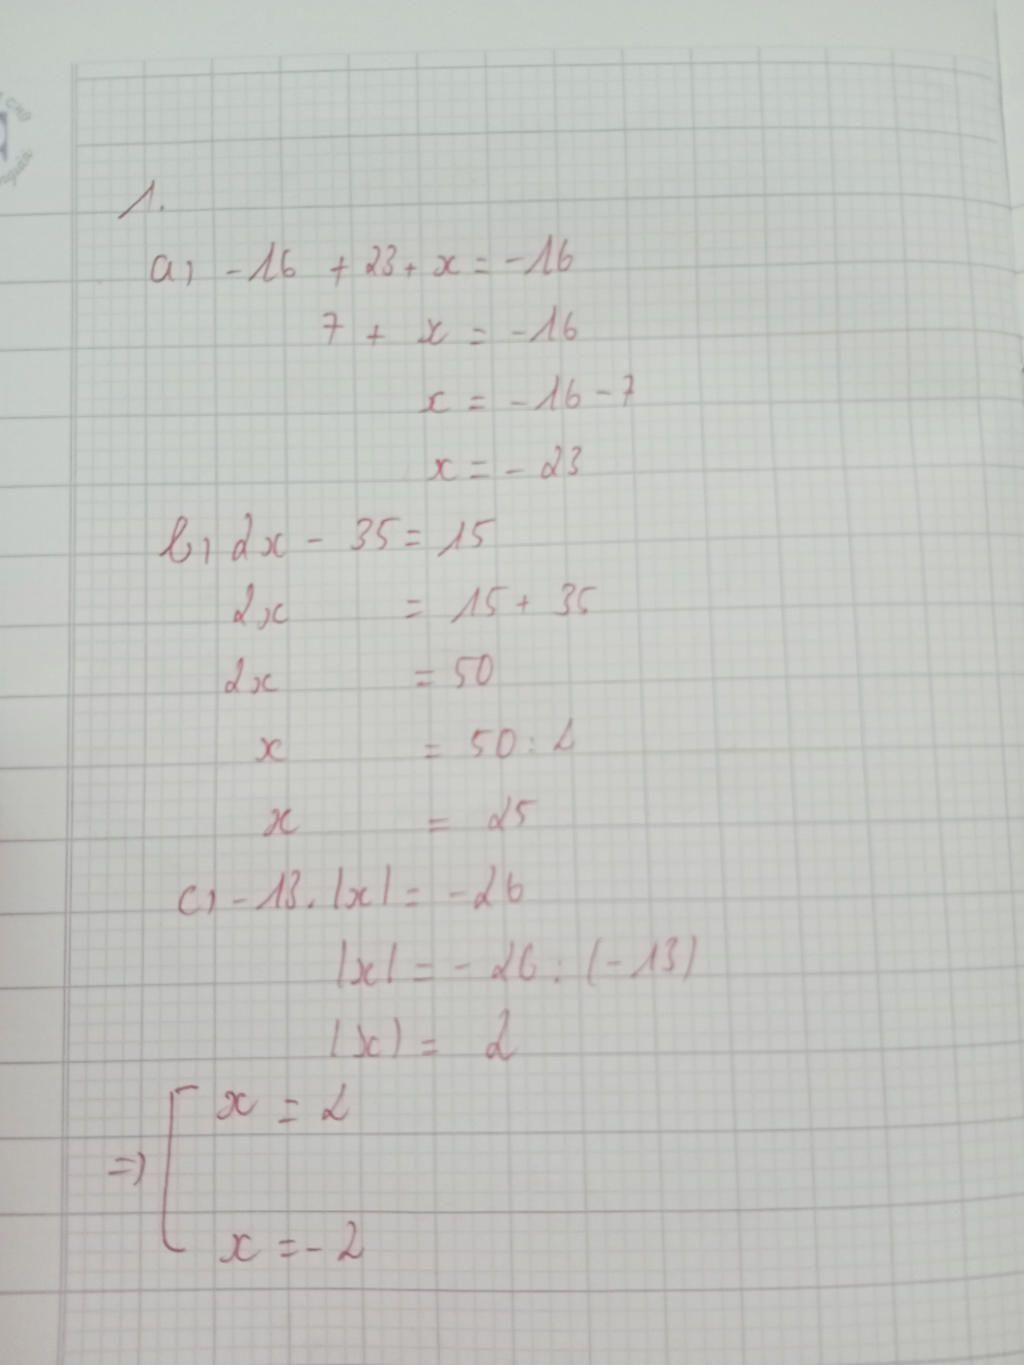 1.
a, -16 + 23 + x = -16
7 + x = -16
x = -16 - 7
x = - 23
b, 2x - 35 = 15
2x = 15 + 35
2x = 50
x = 50 : 2
x = 25
c, -13 . |x| = -26
|x| = - 26 : (-13)
|x| = 2
=> [ x = 2
x = - 2